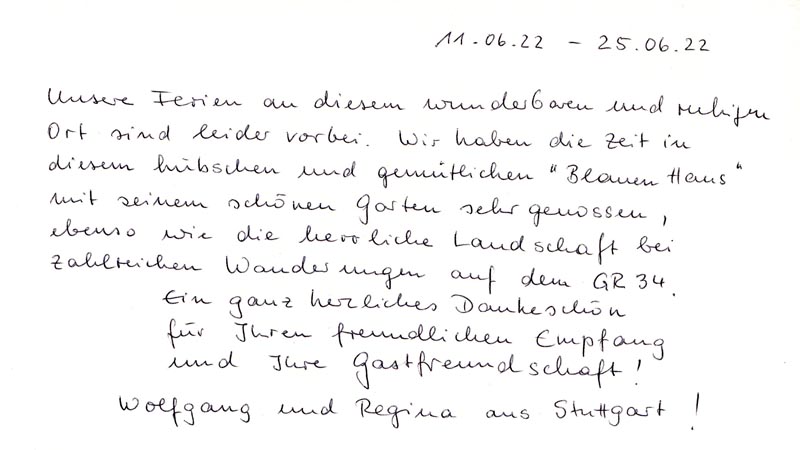 11.06.22 - 25.06.22
Unsere Ferien an diesem wunderbaren und ruhigen
Ort sind leider vorbei. Wir haben die Zeit in
diesem hübschen und gemütlichen "Blauen Haus"
mit seinem schönen Garten sehr genossen,
ebenso wie die herrliche Landschaft bei
zahlreichen Wanderungen auf dem GR 34.
Ein ganz herzliches Dankeschön
für Ihren freundlichen Empfang
und Ihre Gastfreundschaft!
Wolfgang und Regina aus Stuttgart!